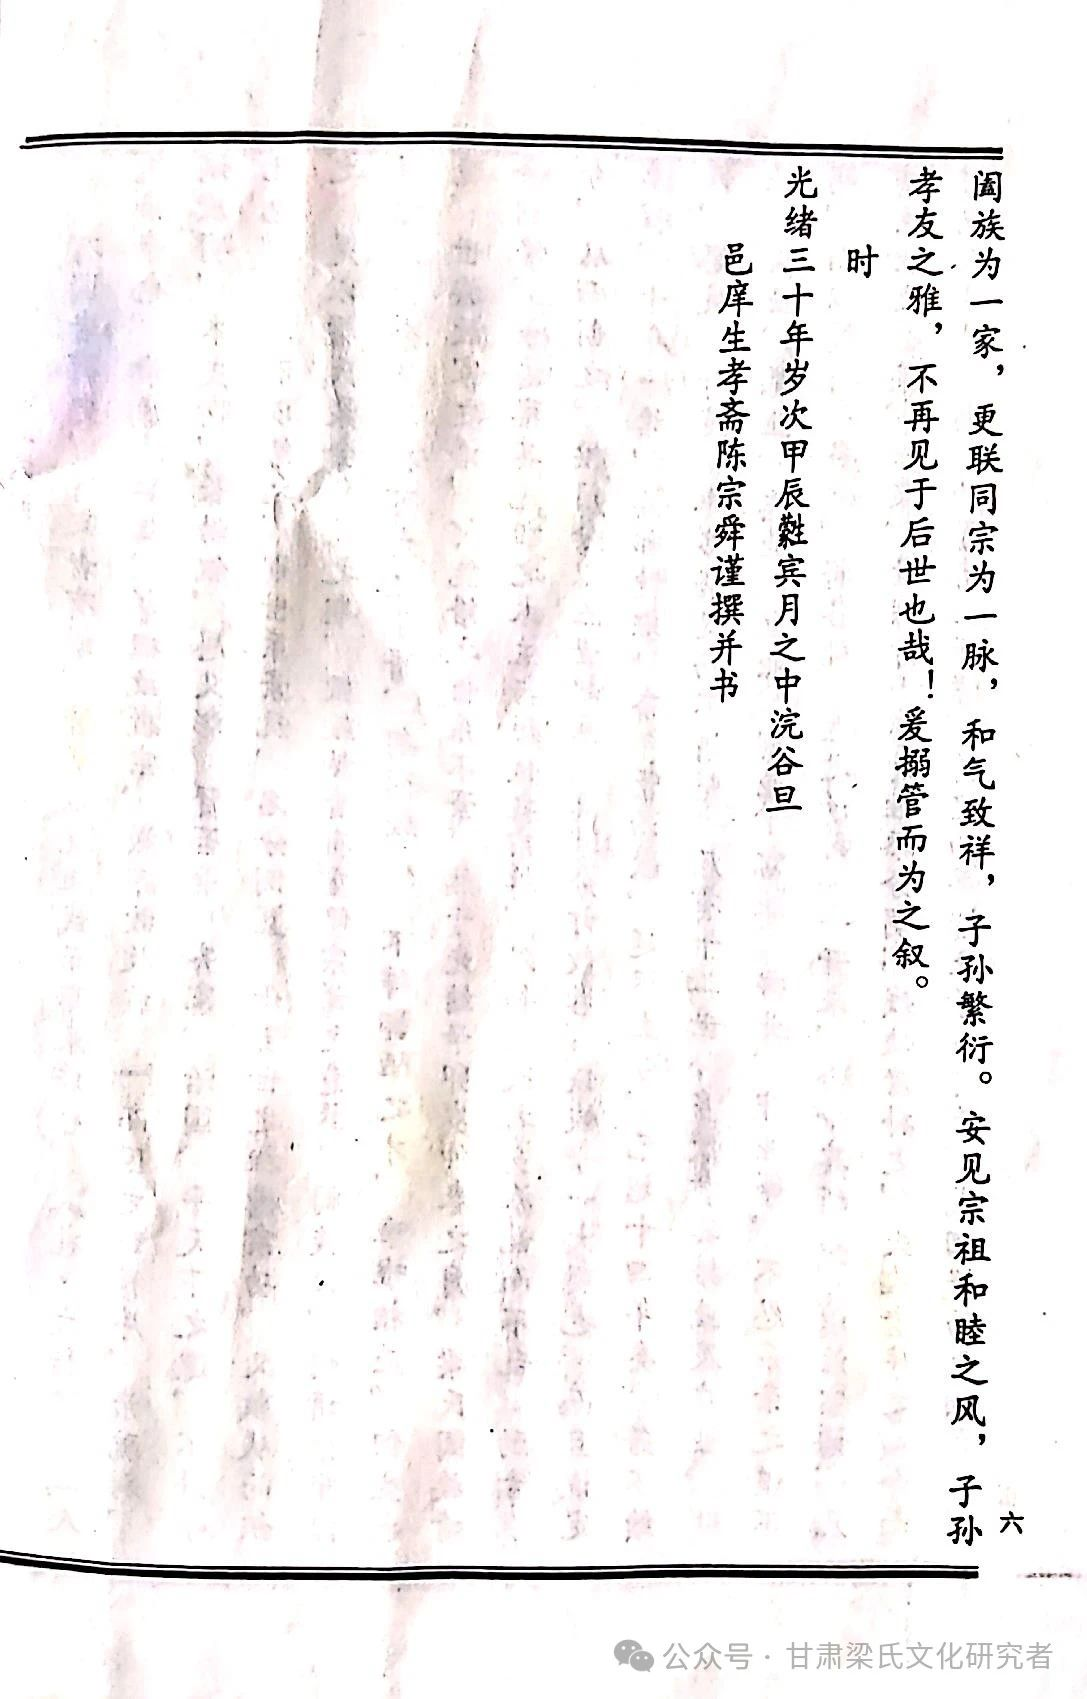 阖族为一家，更联同宗为一脉，和气致祥，子孙繁衍。安见宗祖和睦之风，子孙
孝友之雅，不再见于后世也哉！爰搦管而为之叙。
时
光绪三十年岁次甲辰蕤宾月之中浣谷旦
邑庠生孝斋陈宗舜谨撰并书
六
公众号·甘肃梁氏文化研究者